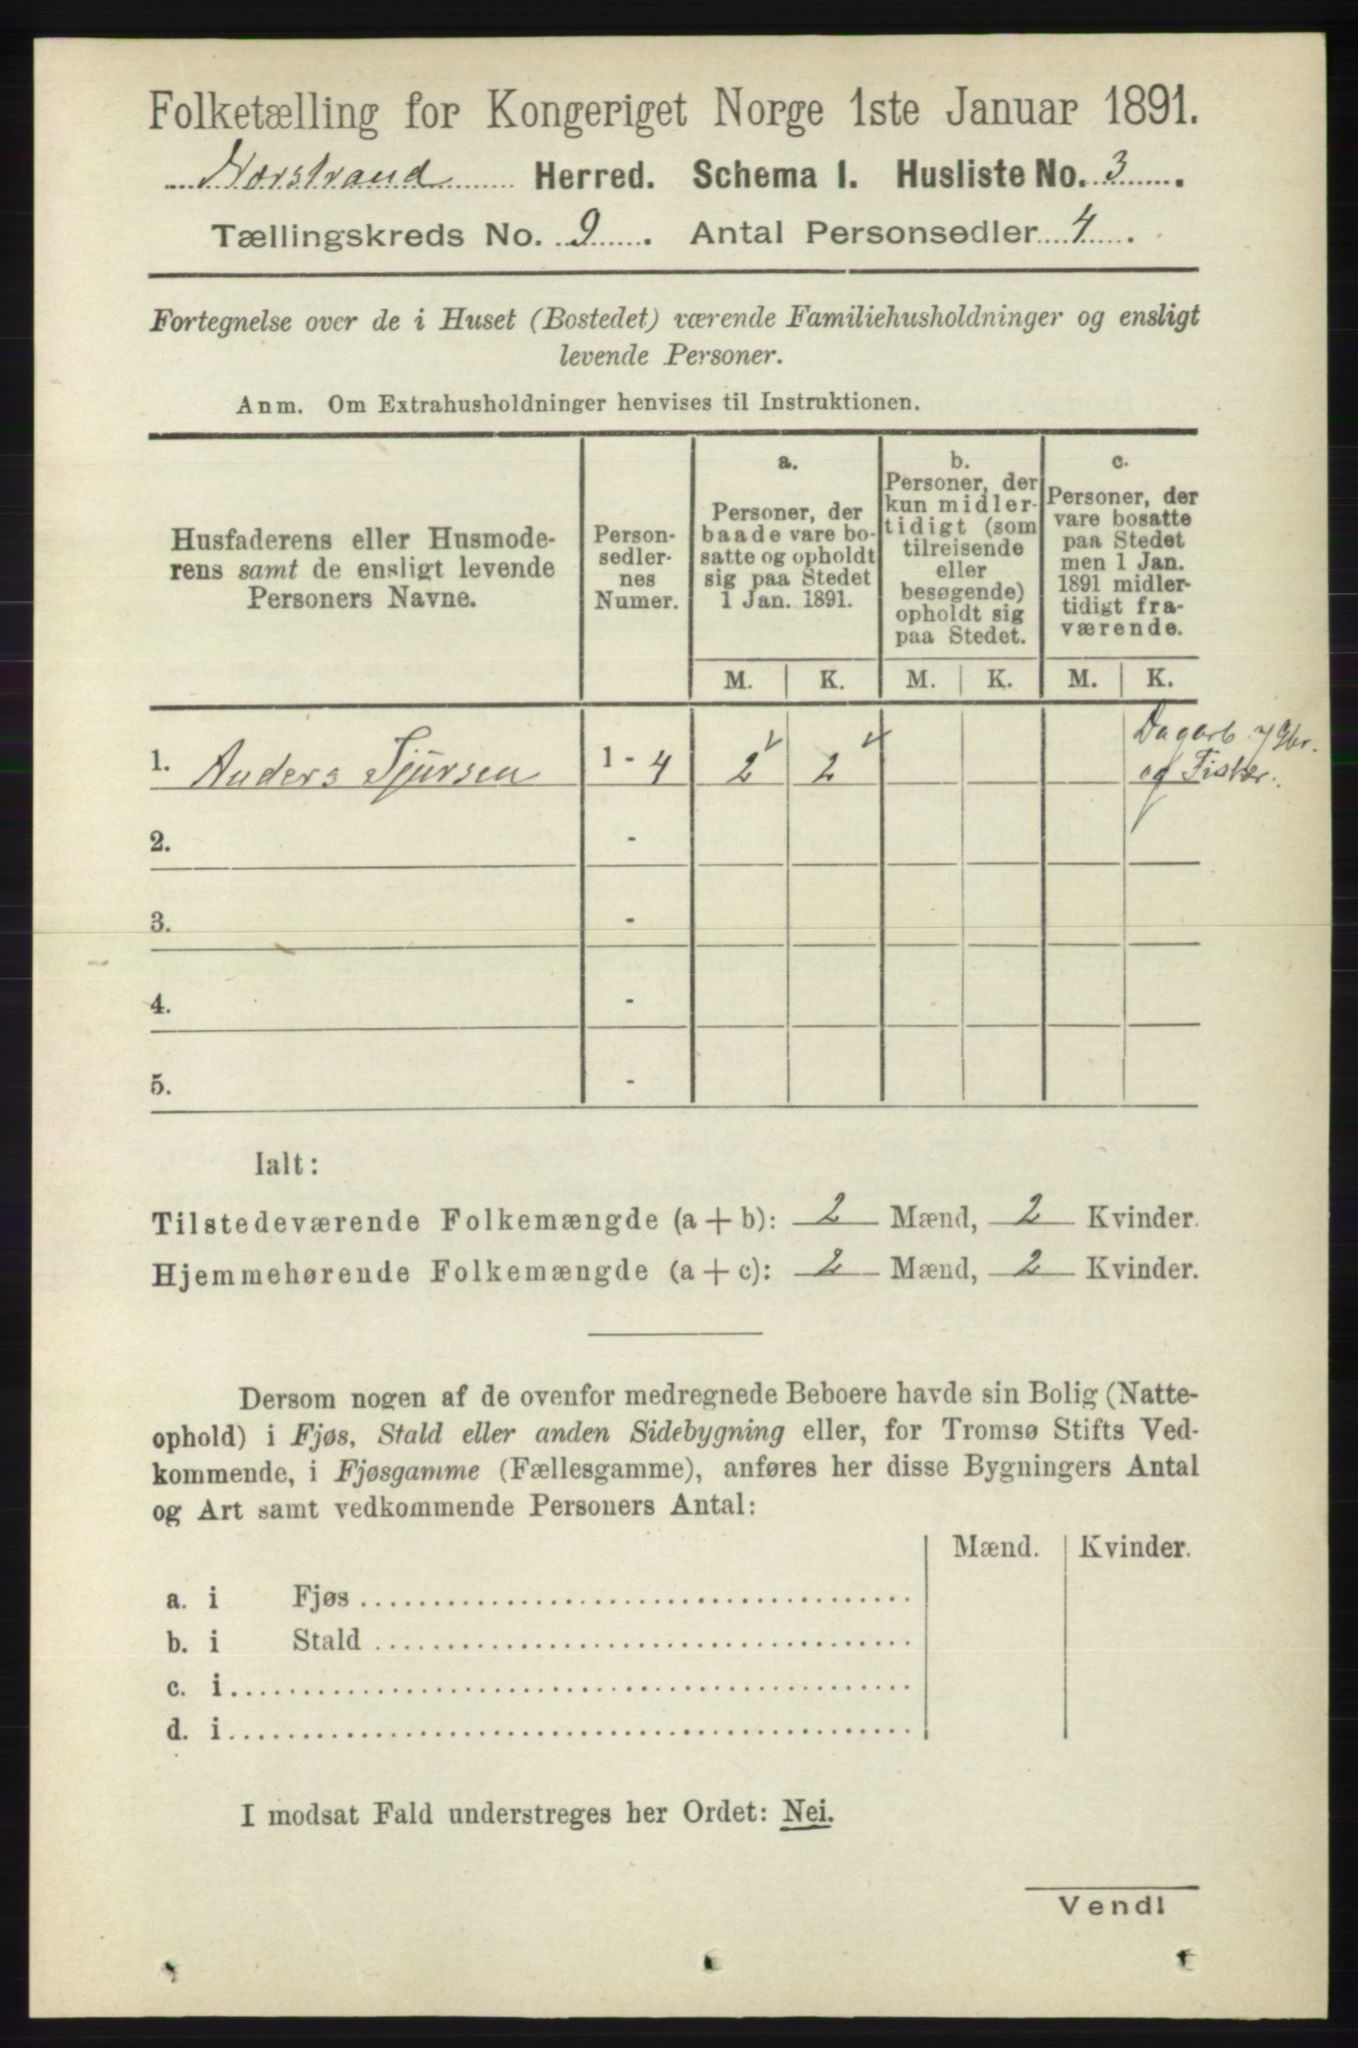 Folketælling for Kongeriget Norge 1ste Januar 1891.
Nærstrand Herred. Schema 1. Husliste No. 3.
Tællingskreds No. 9. Antal Personsedler 4.
Fortegnelse over de i Huset (Bostedet) værende Familiehusholdninger og ensligt
levende Personer.
Anm. Om Extrahusholdninger henvises til Instruktionen.
Husfaderens eller Husmode-
rens samt de ensligt levende
Personers Navne.
Person-
sedler-
nes
Numer.
a.
Personer, der
baade vare bo-
satte og opholdt
sig paa Stedet
1 Jan. 1891.
b.
Personer, der
kun midler-
tidigt (som
tilreisende
eller
besøgende)
opholdt sig
paa Stedet.
c.
Personer, der
vare bosatte
paa Stedet
men 1 Jan.
1891 midler-
tidigt fra-
værende.
M. K. M. K. M. K.
1. Anders Sjursen 1 - 4 2 2
Dagarb.
og Fisker.
2. -
3. -
4. -
5. -
Ialt:
Tilstedeværende Folkemængde (a + b): 2 Mænd, 2 Kvinder.
Hjemmehørende Folkemængde (a + c): 2 Mænd, 2 Kvinder.
Dersom nogen af de ovenfor medregnede Beboere havde sin Bolig (Natte-
ophold) i Fjøs, Stald eller anden Sidebygning eller, for Tromsø Stifts Ved-
kommende, i Fjøsgamme (Fællesgamme), anføres her disse Bygningers Antal
og Art samt vedkommende Personers Antal:
Mænd. Kvinder.
a. i Fjøs
b. i Stald
c. i
d. i
I modsat Fald understreges her Ordet: Nei.
Vend!